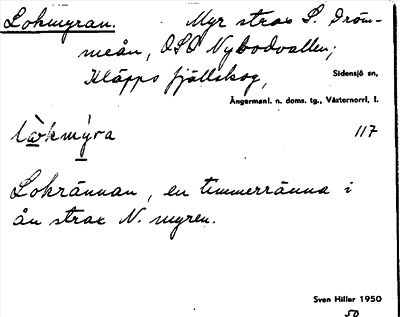 Lokmyran. Myr strax S. Dröm-
meån, OSO Nybodvallen;
Kläpps fjällskog,
Sidensjö sn,
Ångermanl. n. doms. tg., Västernorrl. l.
lo̠kmy̠ra 117
Lokrännan, en timmerränna i
ån strax N. myren.
Sven Hiller 1950
50